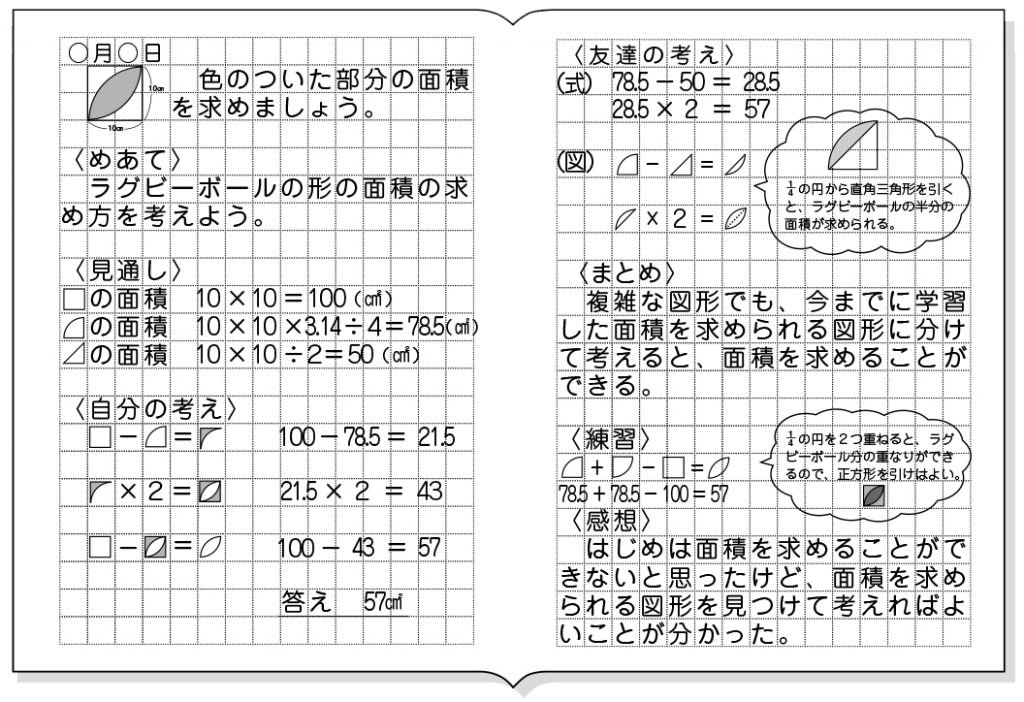 ○月○日
10㎝
10㎝
色のついた部分の面積
を求めましょう。
〈めあて〉
ラグビーボールの形の面積の求
め方を考えよう。
〈見通し〉
の面積 10×10＝100（㎠）
の面積 10×10×3.14÷4＝78.5（㎠）
の面積 10×10÷2＝50（㎠）
〈自分の考え〉
－ ＝ 100－78.5＝21.5
×2＝ 21.5×2＝43
－ ＝ 100－43＝57
答え 57㎠
〈友達の考え〉
(式) 78.5－50＝28.5
28.5×2＝57
(図) － ＝
×2＝
1/4の円から直角三角形を引く
と、ラグビーボールの半分の
面積が求められる。
〈まとめ〉
複雑な図形でも、今までに学習
した面積を求められる図形に分け
て考えると、面積を求めることが
できる。
〈練習〉
＋ － ＝
78.5＋78.5－100＝57
1/4の円を２つ重ねると、ラグ
ビーボール分の重なりができ
るので、正方形を引けばよい。
〈感想〉
はじめは面積を求めることがで
きないと思ったけど、面積を求め
られる図形を見つけて考えればよ
いことが分かった。